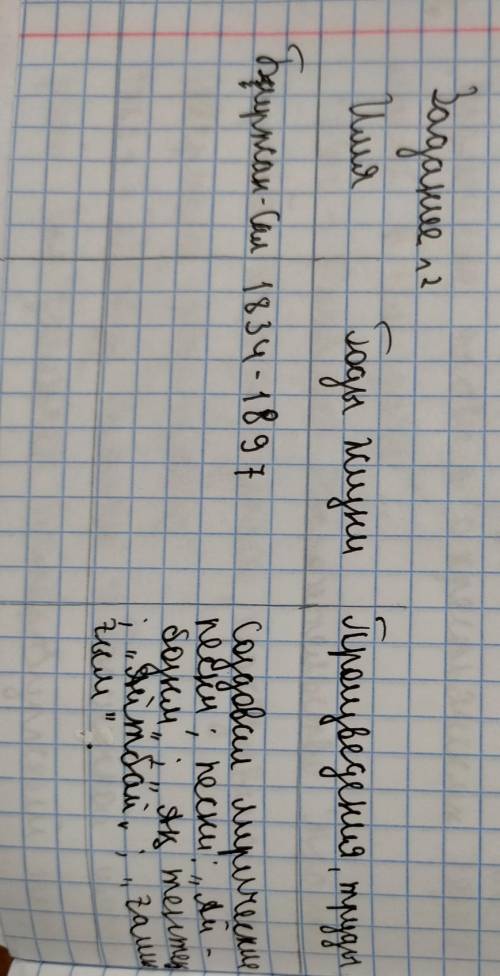 Задание №2
Имя
Годы жизни
Произведения, труды
Биржан-Сал
1834-1897
Создавал лирические
песни; песни: „Ай-
бозым“; „Яқ тентек
; „Айтбай“; „
ғым“.